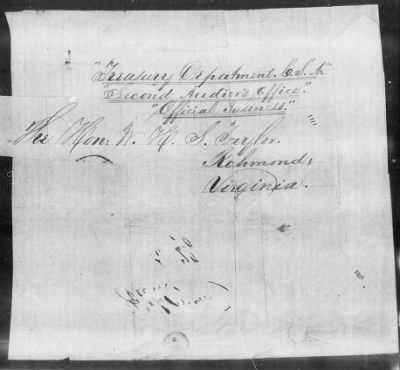 "Treasury Department. C.S.A."
"Second Auditor's Office."
"Official Business."
The Hon: W. H. S. Taylor.
Richmond;
Virginia.